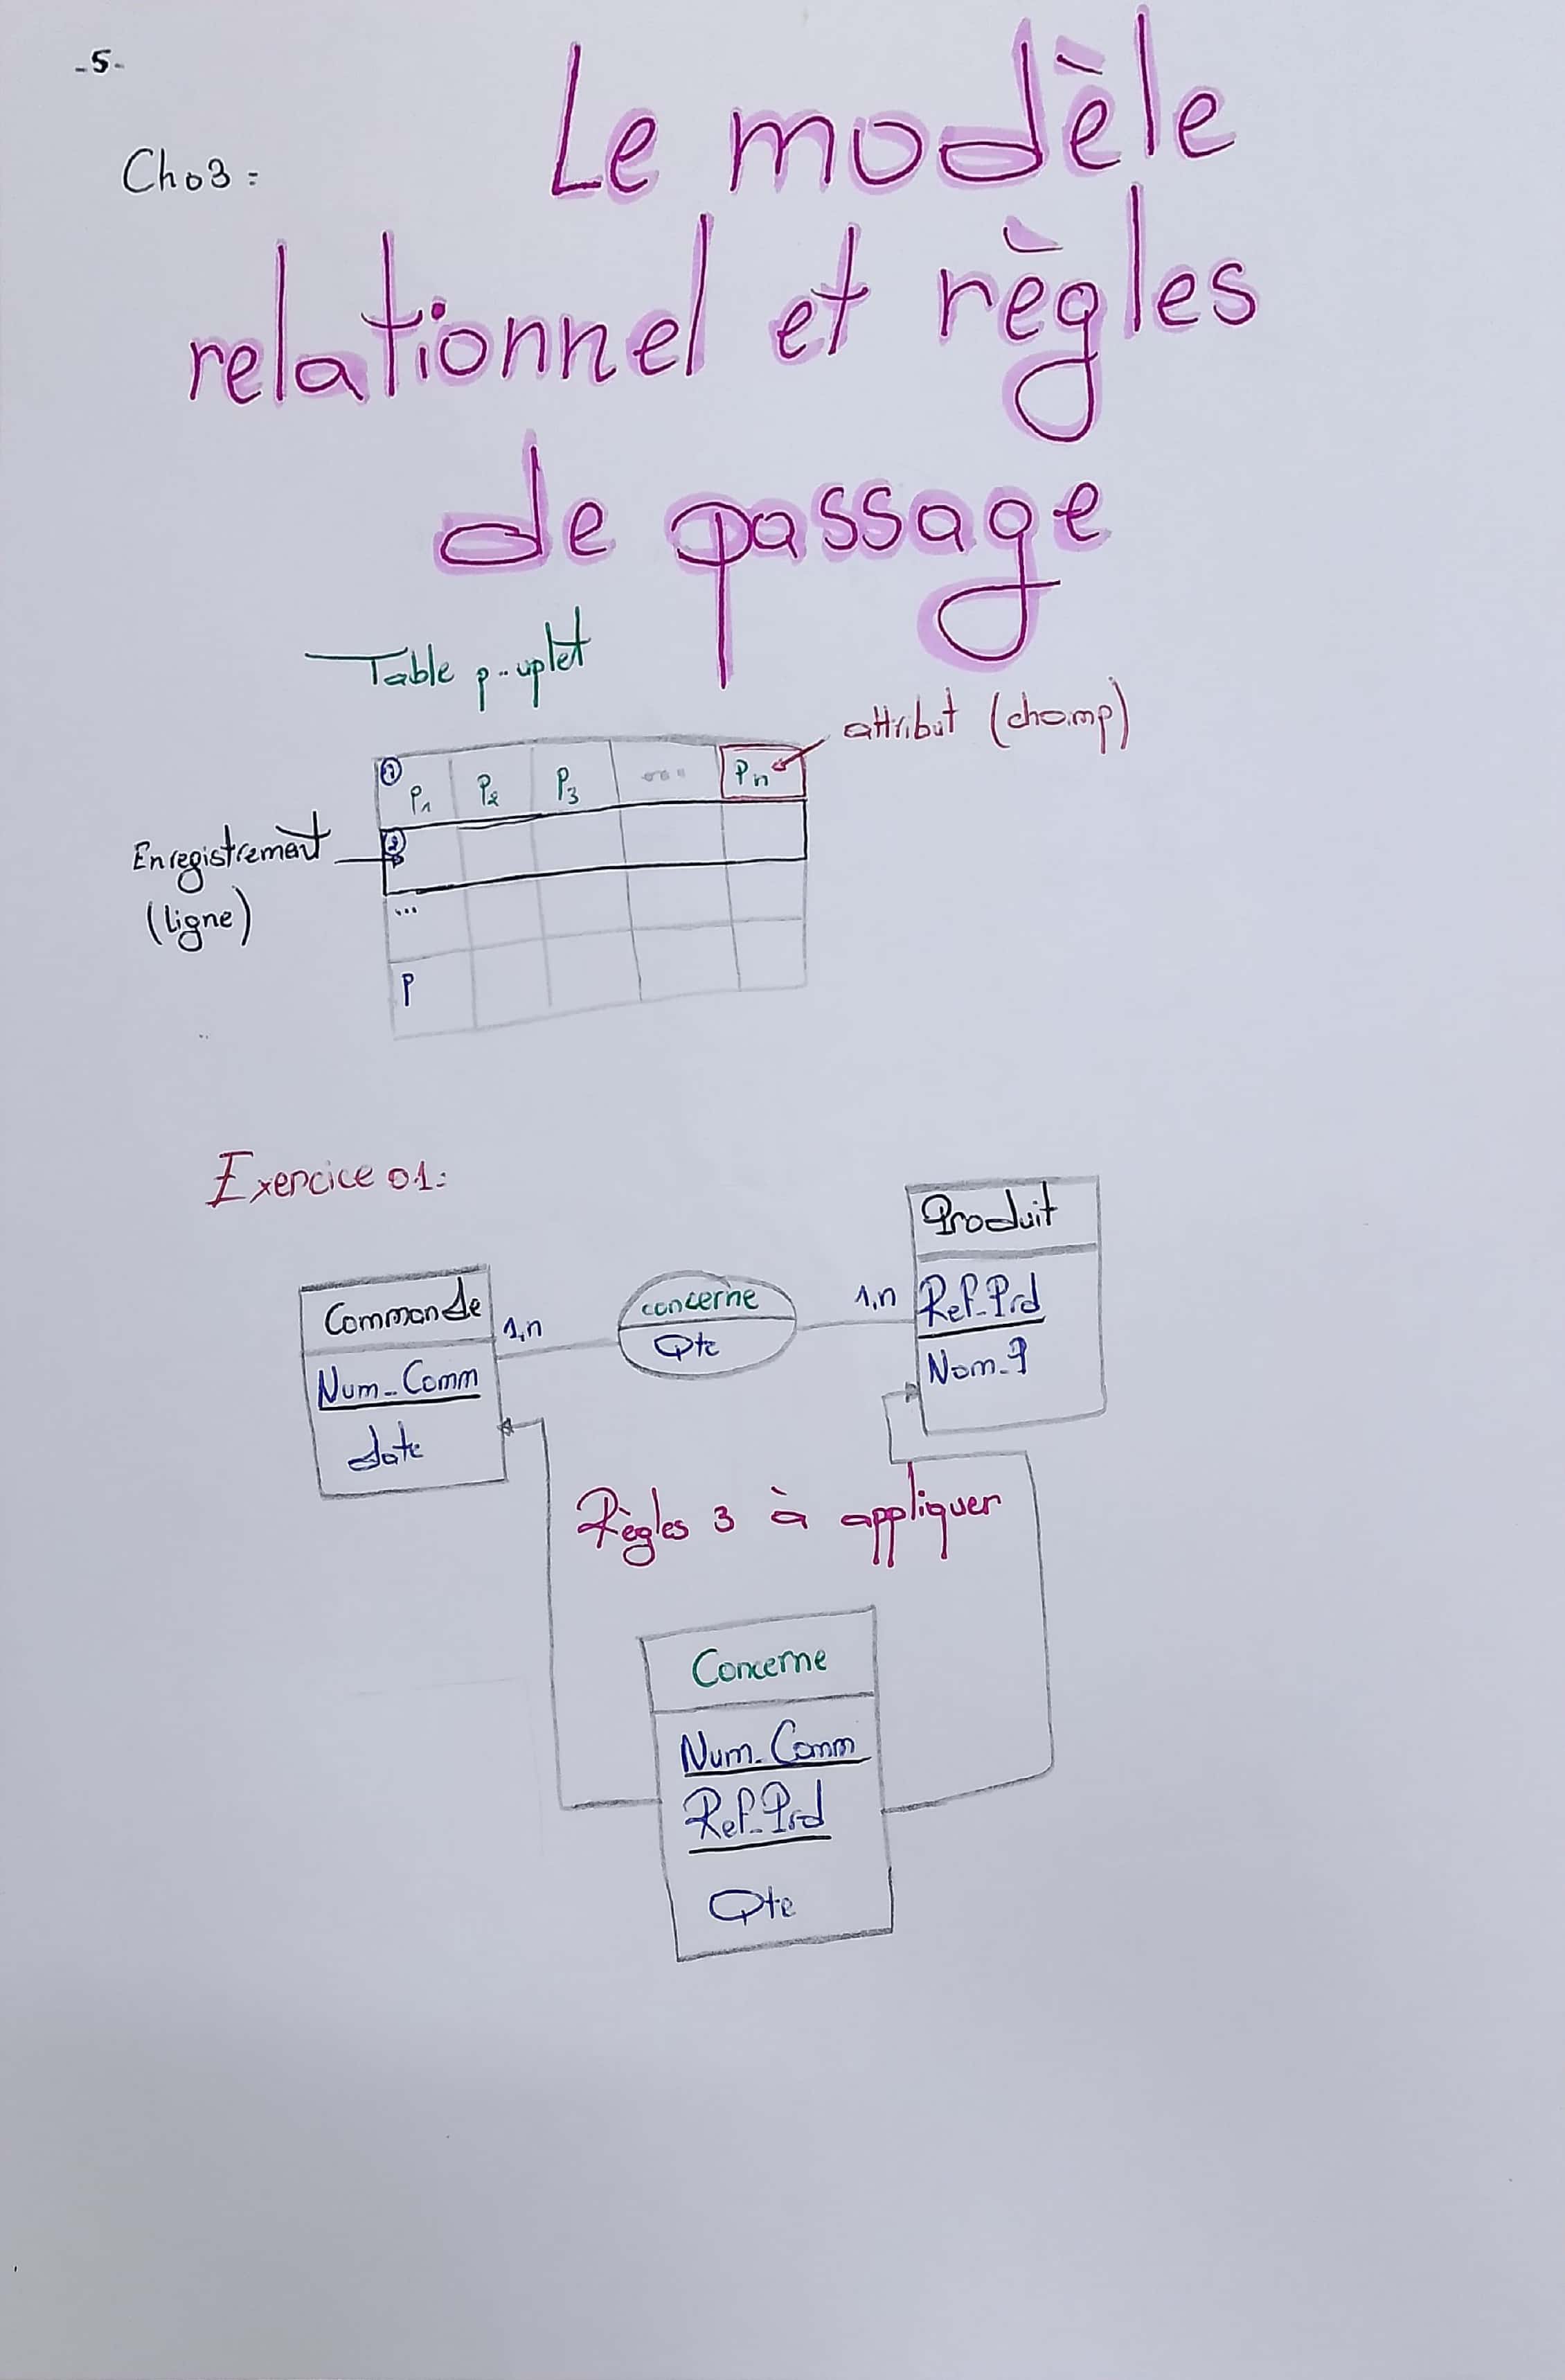 -5-
Ch03:
Le modèle
relationnel et règles
de passage
Table p-uplet
attribut (champ)
① P1 P2 P3 .... Pn
Enregistrement
(ligne)
②
...
P
Exercice 01:
Produit
Ref_Prd
Nom_P
Commande
Num_Comm
date
1,n
concerne
Qte
1,n
Règles 3 à appliquer
Concerne
Num_Comm
Ref_Prd
Qte